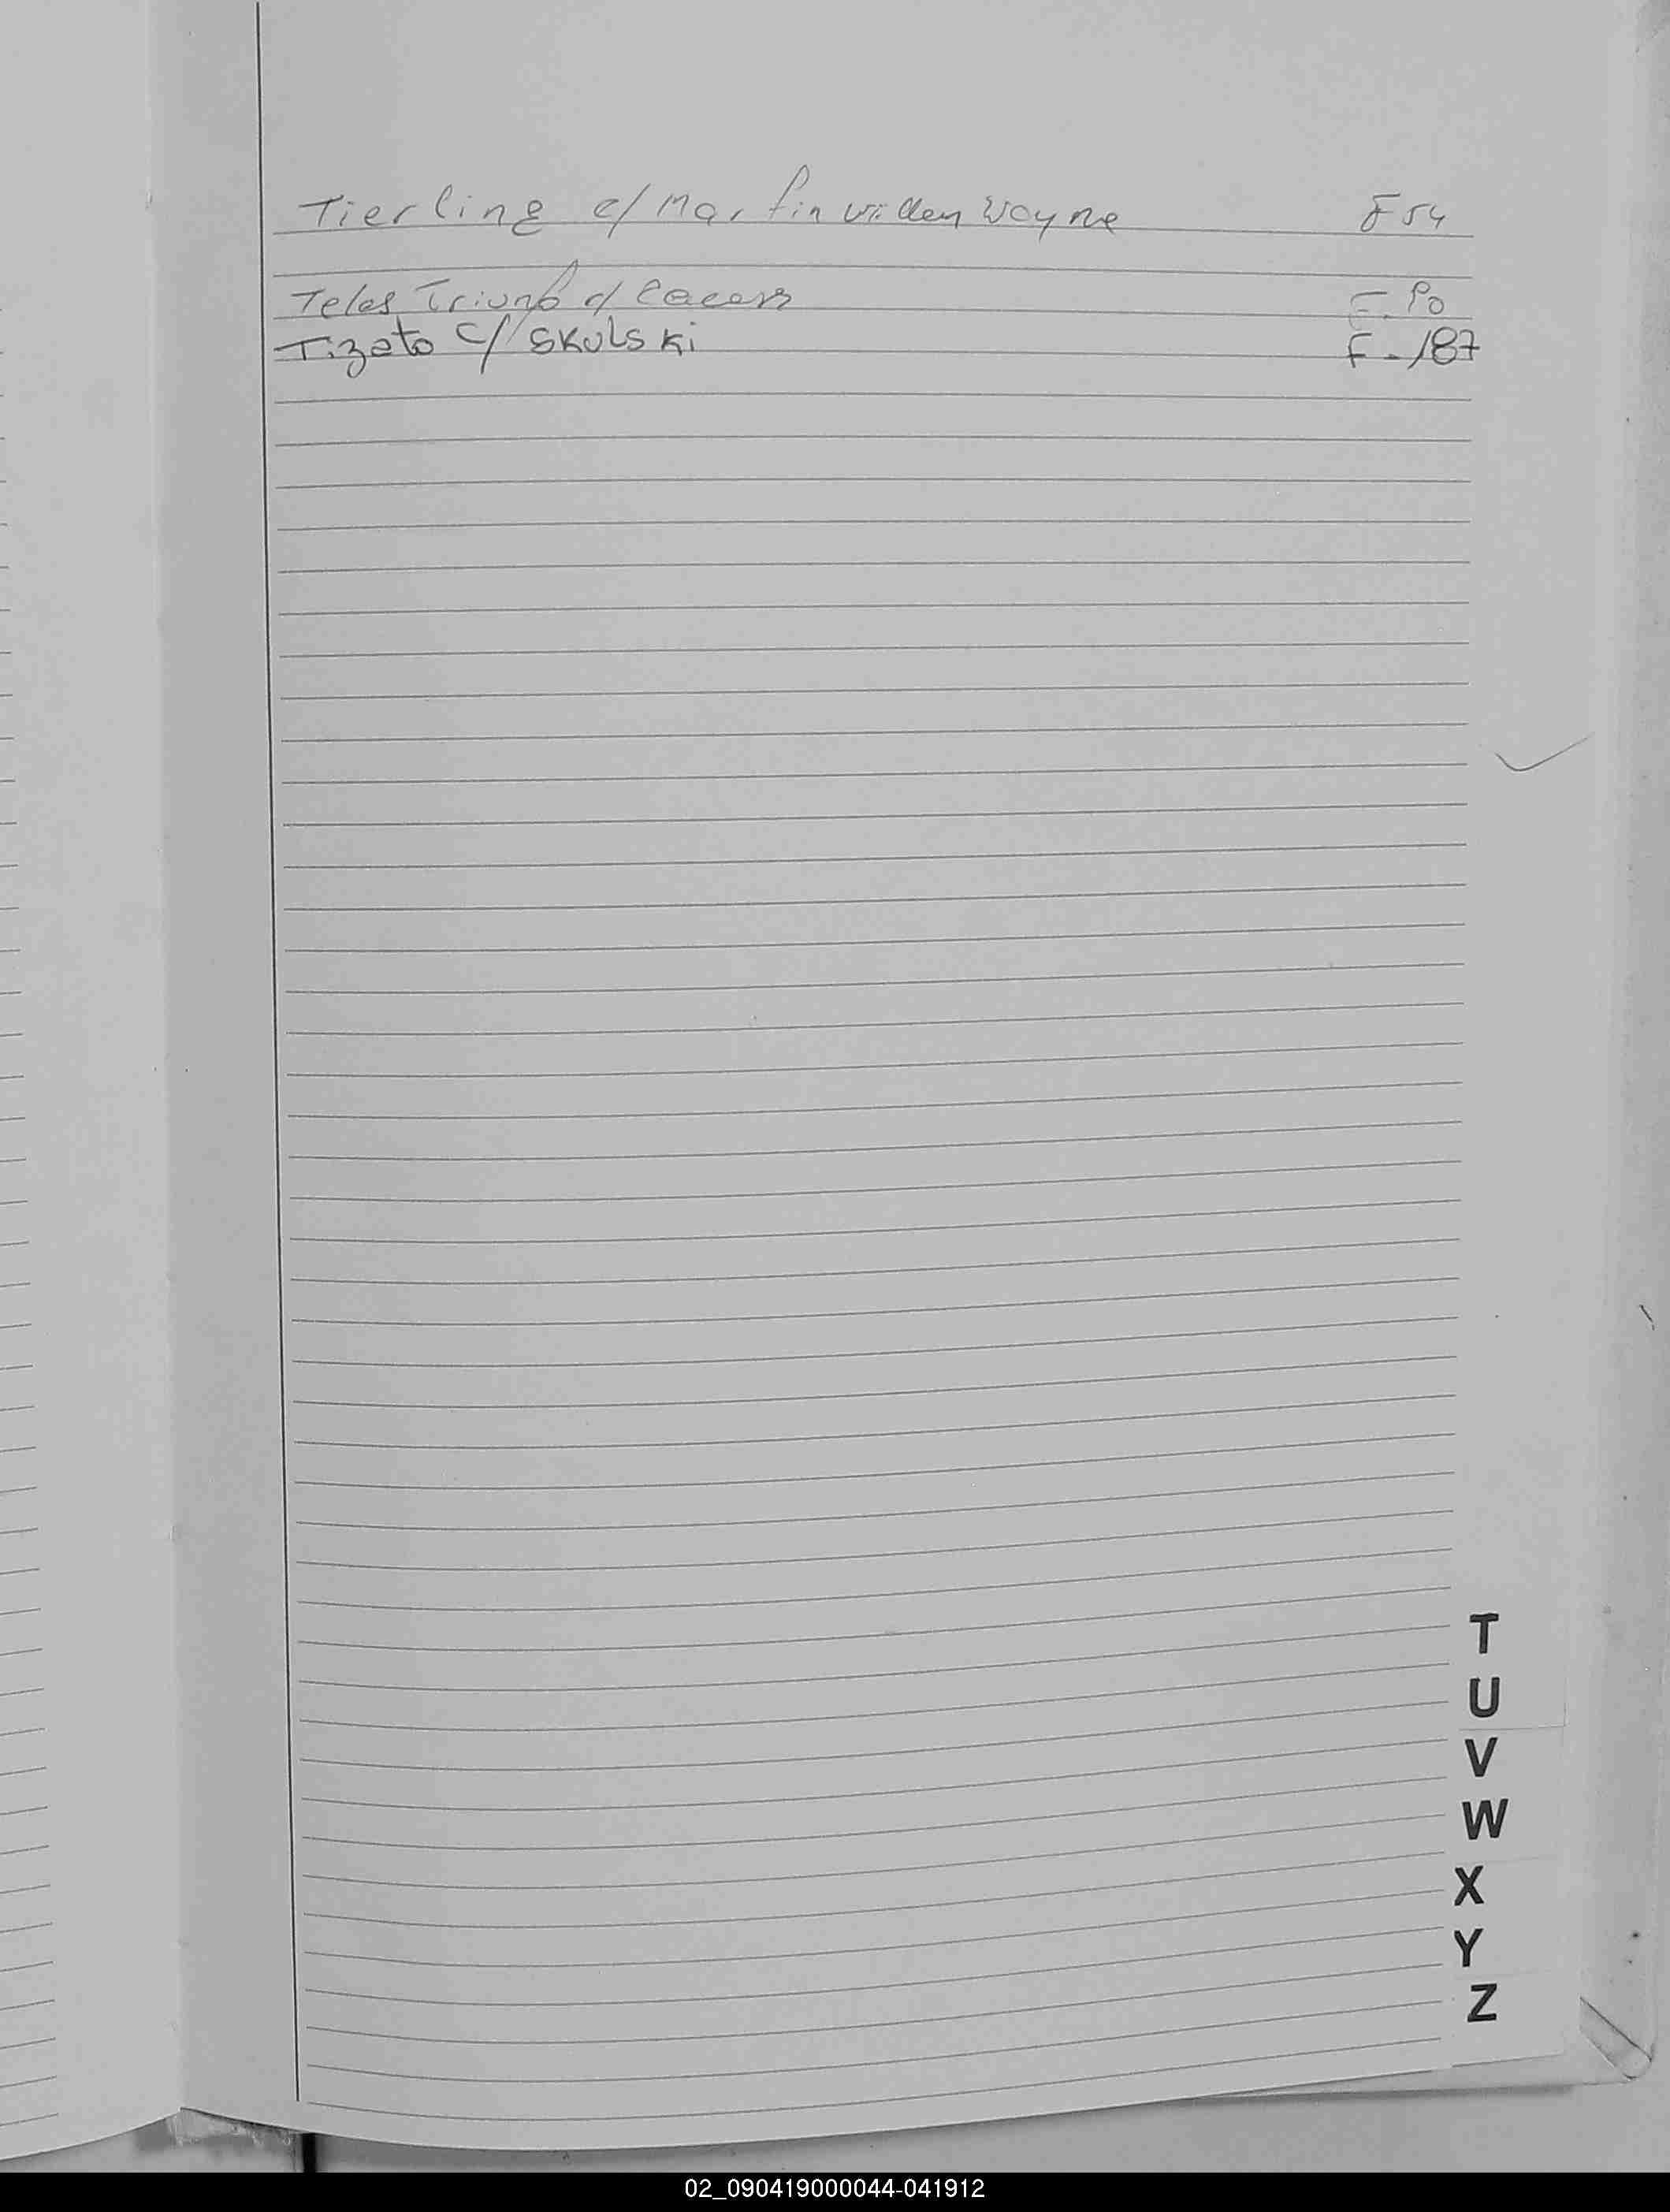 Tierling c/ Martin Willen Wayne F 54
Telas Triunfo c/ F. 90
Tizato c/ Skulski F-187
T
U
V
W
X
Y
Z
02_090419000044-041912